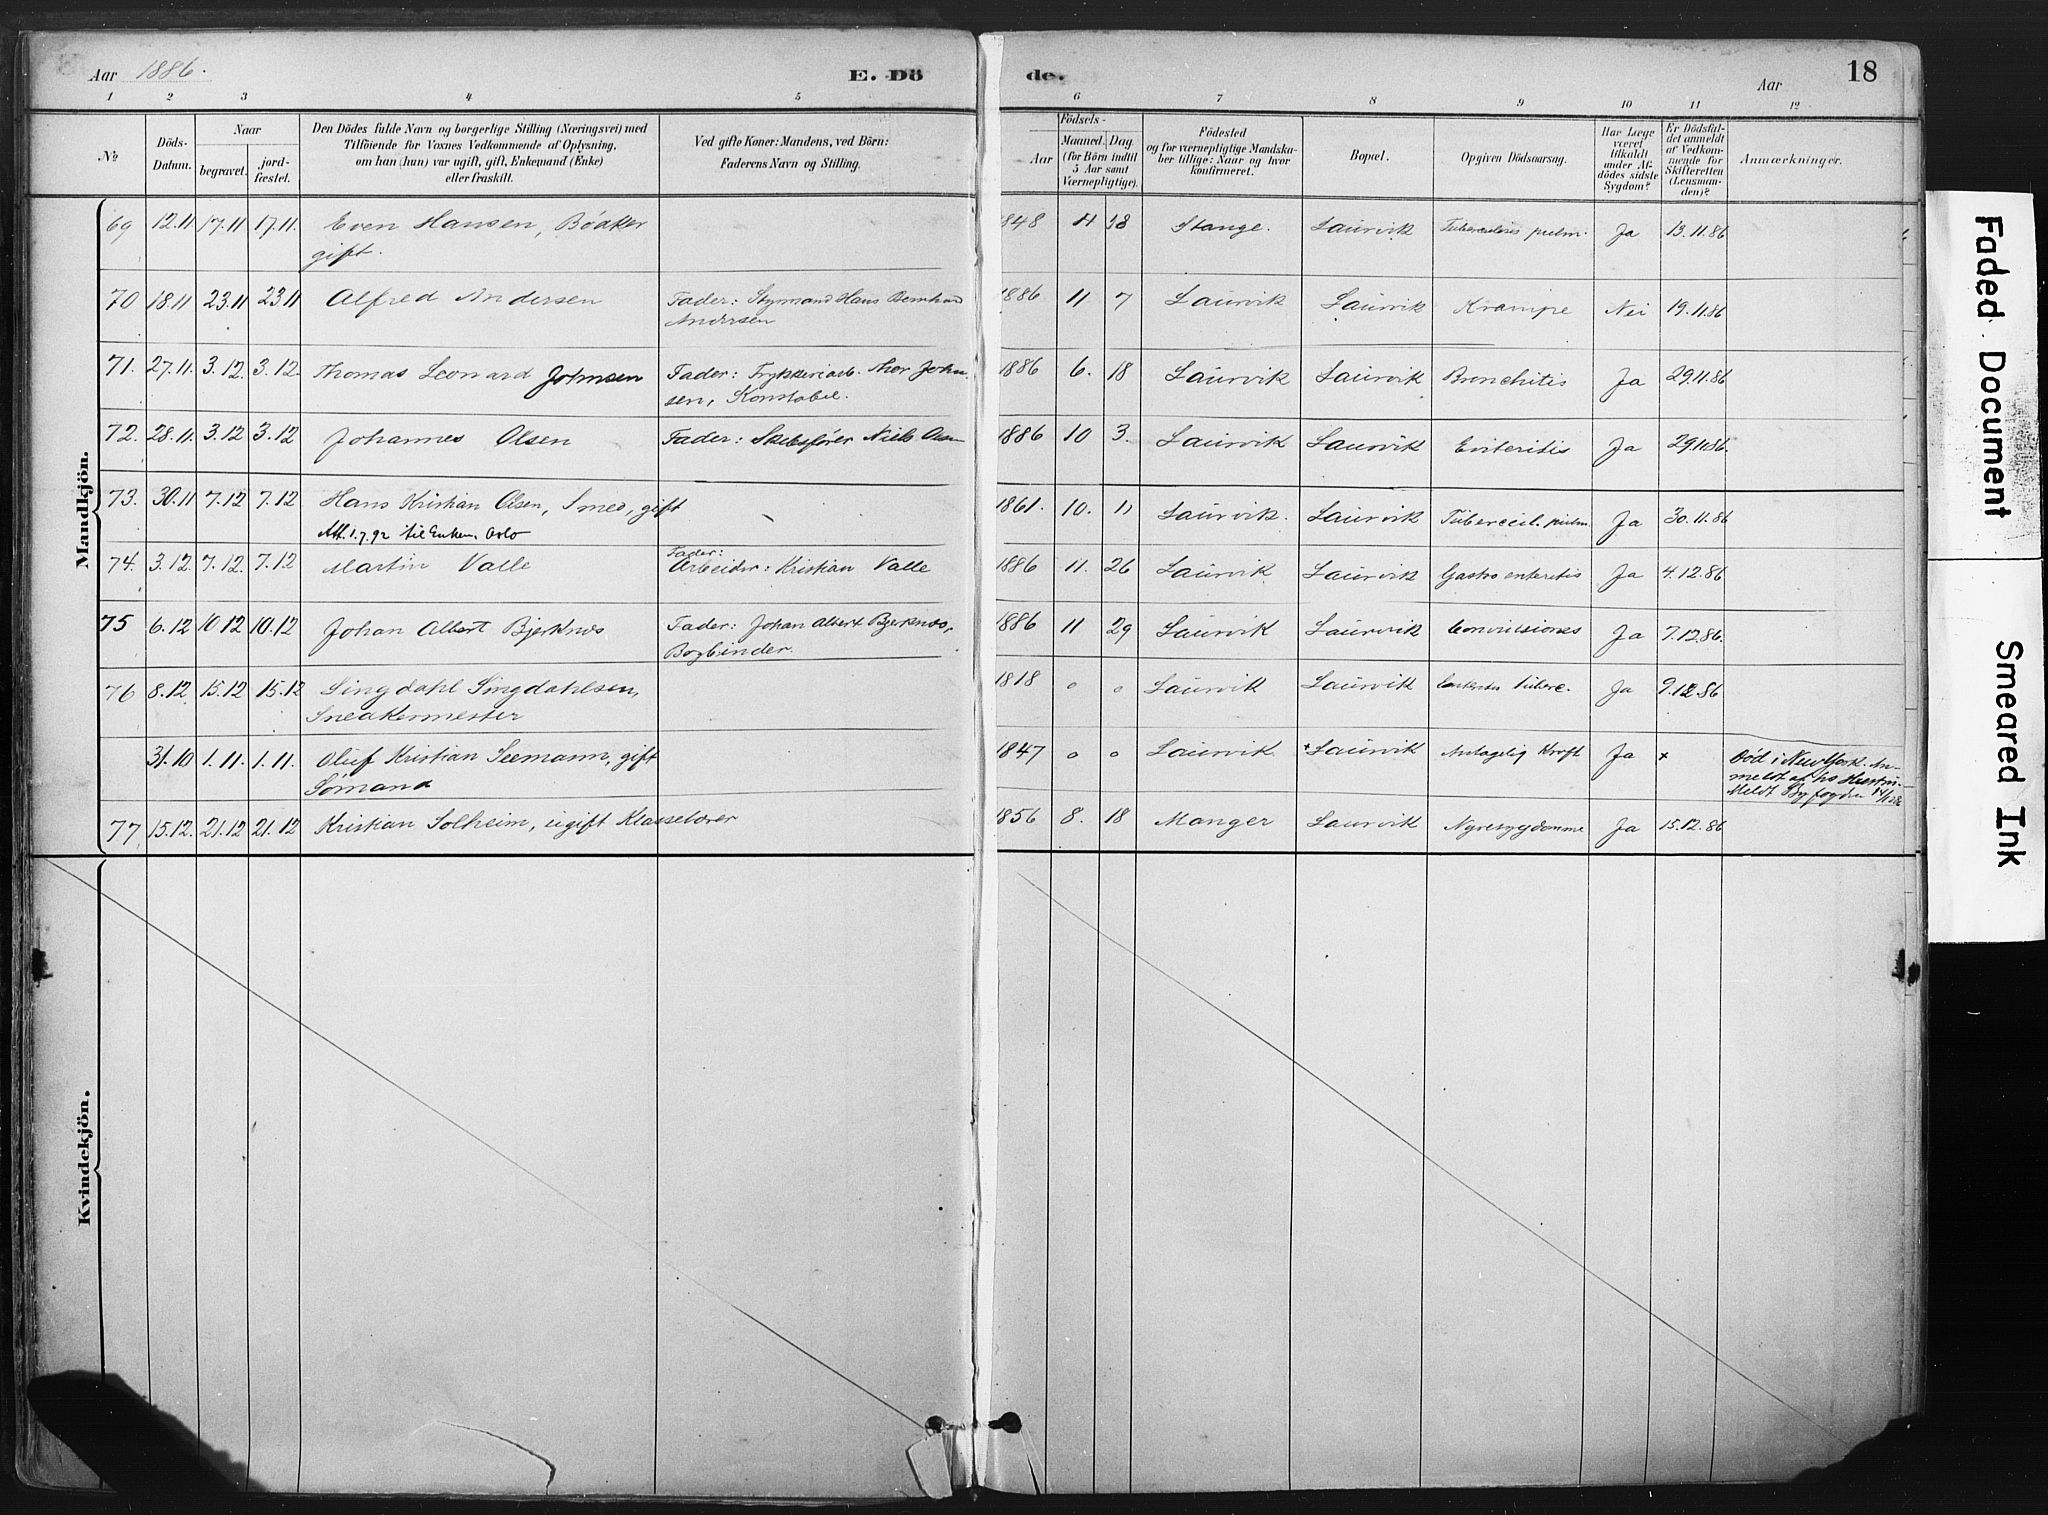 Aar 1886. E. Dö de. Aar 18
1 2 3 4 5 6 7 8 9 10 11 12
No
Döds-Datum.
Naar
begravet. jord-fæstet.
Den Dödes fulde Navn og borgerlige Stilling (Næringsvei) med
Tilföiende for Voxnes Vedkommende af Oplysning,
om han (hun) var ugift, gift, Enkemand (Enke)
eller fraskilt.
Ved gifte Koner: Mandens, ved Börn:
Faderens Navn og Stilling.
Födsels-
Aar Maaned. Dag.
(for Börn indtil
5 Aar samt
Værnepligtige).
Födested
og for værnepligtige Mandska-
ber tillige: Naar og hvor
konfirmeret.
Bopæl.
Opgiven Dödsaarsag.
Har Læge
været
tilkaldt
under Af-
dödes sidste
Sygdom?
Er Dödsfal-
det anmeldt
af Vedkom-
mende for
Skifteretten
(Lensman-
den)?
Anmærkninger.
Mandkjön.
69 12.11 17.11 17.11. Even Hansen, Bødker 1848 11 18 Stange. Laurvik Tuberculosis pulm. Ja 13.11.86
gift.
70 18.11 23.11 23 11 Alfred Andersen Fader: Styrmand Hans Bernhard 1886 11 7 Laurvik Laurvik Krampe Nei 19.11.86
Andersen
71. 27.11. 3.12. 3.12. Thomas Leonard Johnsen Fader: Trykkeriarb. Thor John- 1886 6. 18 Laurvik Laurvik Bronchitis Ja 29.11.86
sen, Konstabel.
72. 28.11. 3.12 3.12 Johannes Olsen Fader: Skibsfører Niels Olsen 1886 10 3. Laurvik Laurvik Enteritis Ja 29.11.86.
73. 30.11 7.12 7.12 Hans Kristian Olsen, Smed, gift 1861. 10. 11 Laurvik. Laurvik Tubercul. pulm. Ja 30.11.86
Att. 1.7.92 til Enken, Oslo
74. 3.12. 7.12. 7.12 Martin Valle Fader: Arbeider: Kristian Valle 1886 11. 26 Laurvik Laurvik Gastro enteritis Ja 4.12.86
75 6.12 10 12 10.12 Johan Albert Bjerknæs Fader: Johan Albert Bjerknæs, 1886 11 29 Laurvik Laurvik Convulsiones Ja 7.12.86.
Bogbinder.
76 8.12 15.12 15.12 Singdahl Singdahlsen, 1818 o o Laurvik Laurvik Enteritis Tuberc. Ja 9.12.86
Snedkermester
31.10 1.11. 1.11. Oluf Kristian Seemann, gift 1847 o o Laurvik + Laurvik Antagelig Kræft Ja + Död i New York. An-
Sømand meldt af hs Hustru
Meldt Byfogden
77 15.12. 21.12 21.12 Kristian Solheim, ugift Klasselærer 1856 8. 18 Manger Laurvik Nyresygdomme Ja 15.12.86
Kvindekjön.
Faded Document
Smeared Ink